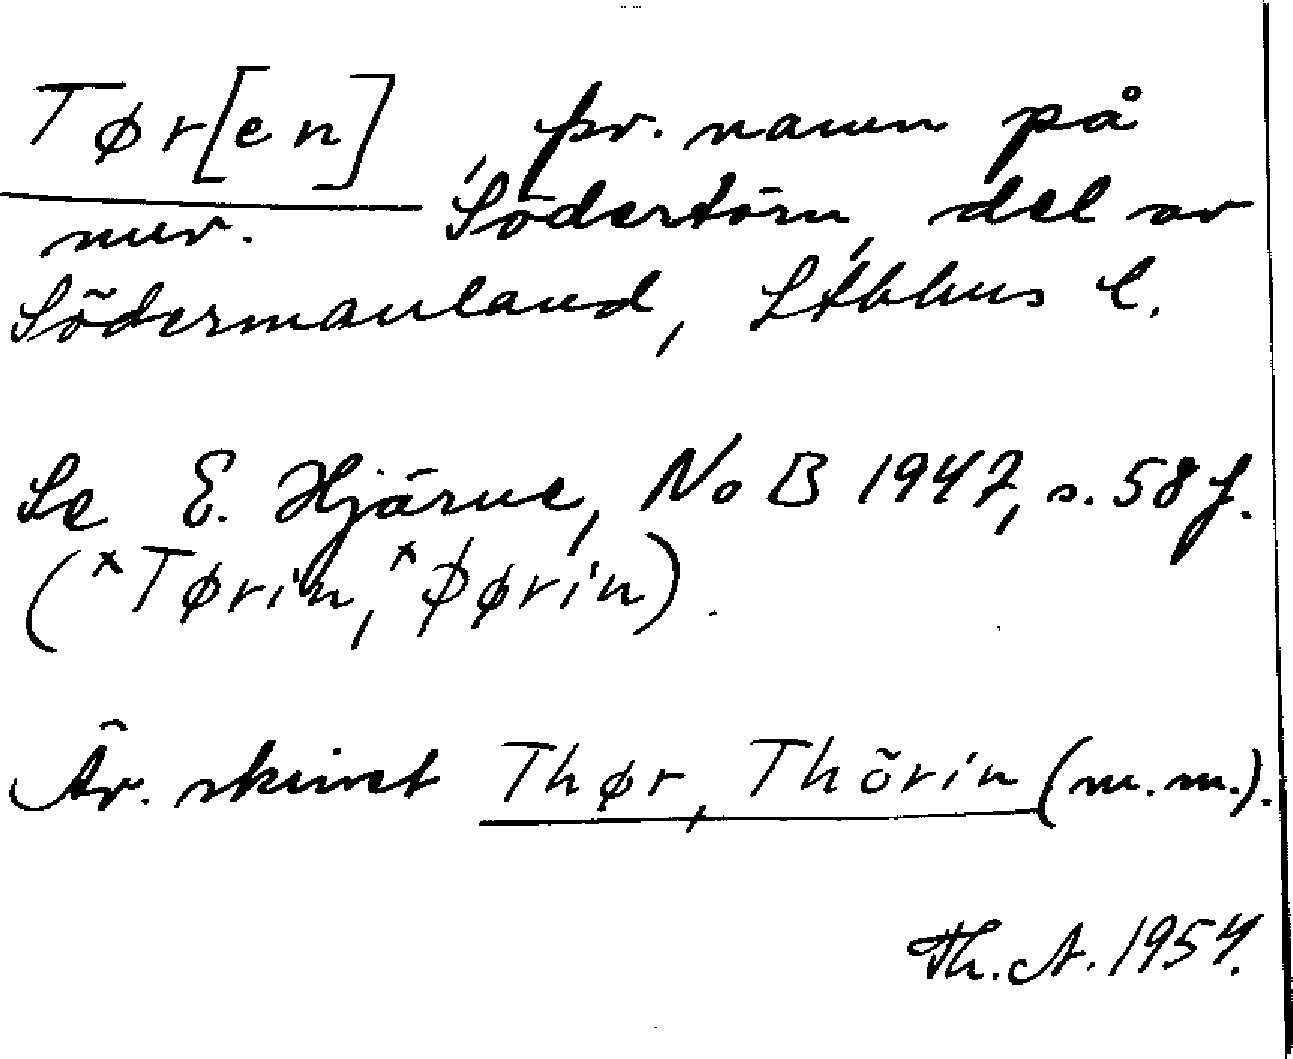 Tør[en], fsv. namn på
nuv. Södertörn, del av
Södermanland, Sthlms l.
Se E. Hjärne, NoB 1947, s. 58 f.
(*Tørin, *Þørin).
Äv. skrivet Thør, Thörin (m.m.).
Th. A. 1954.